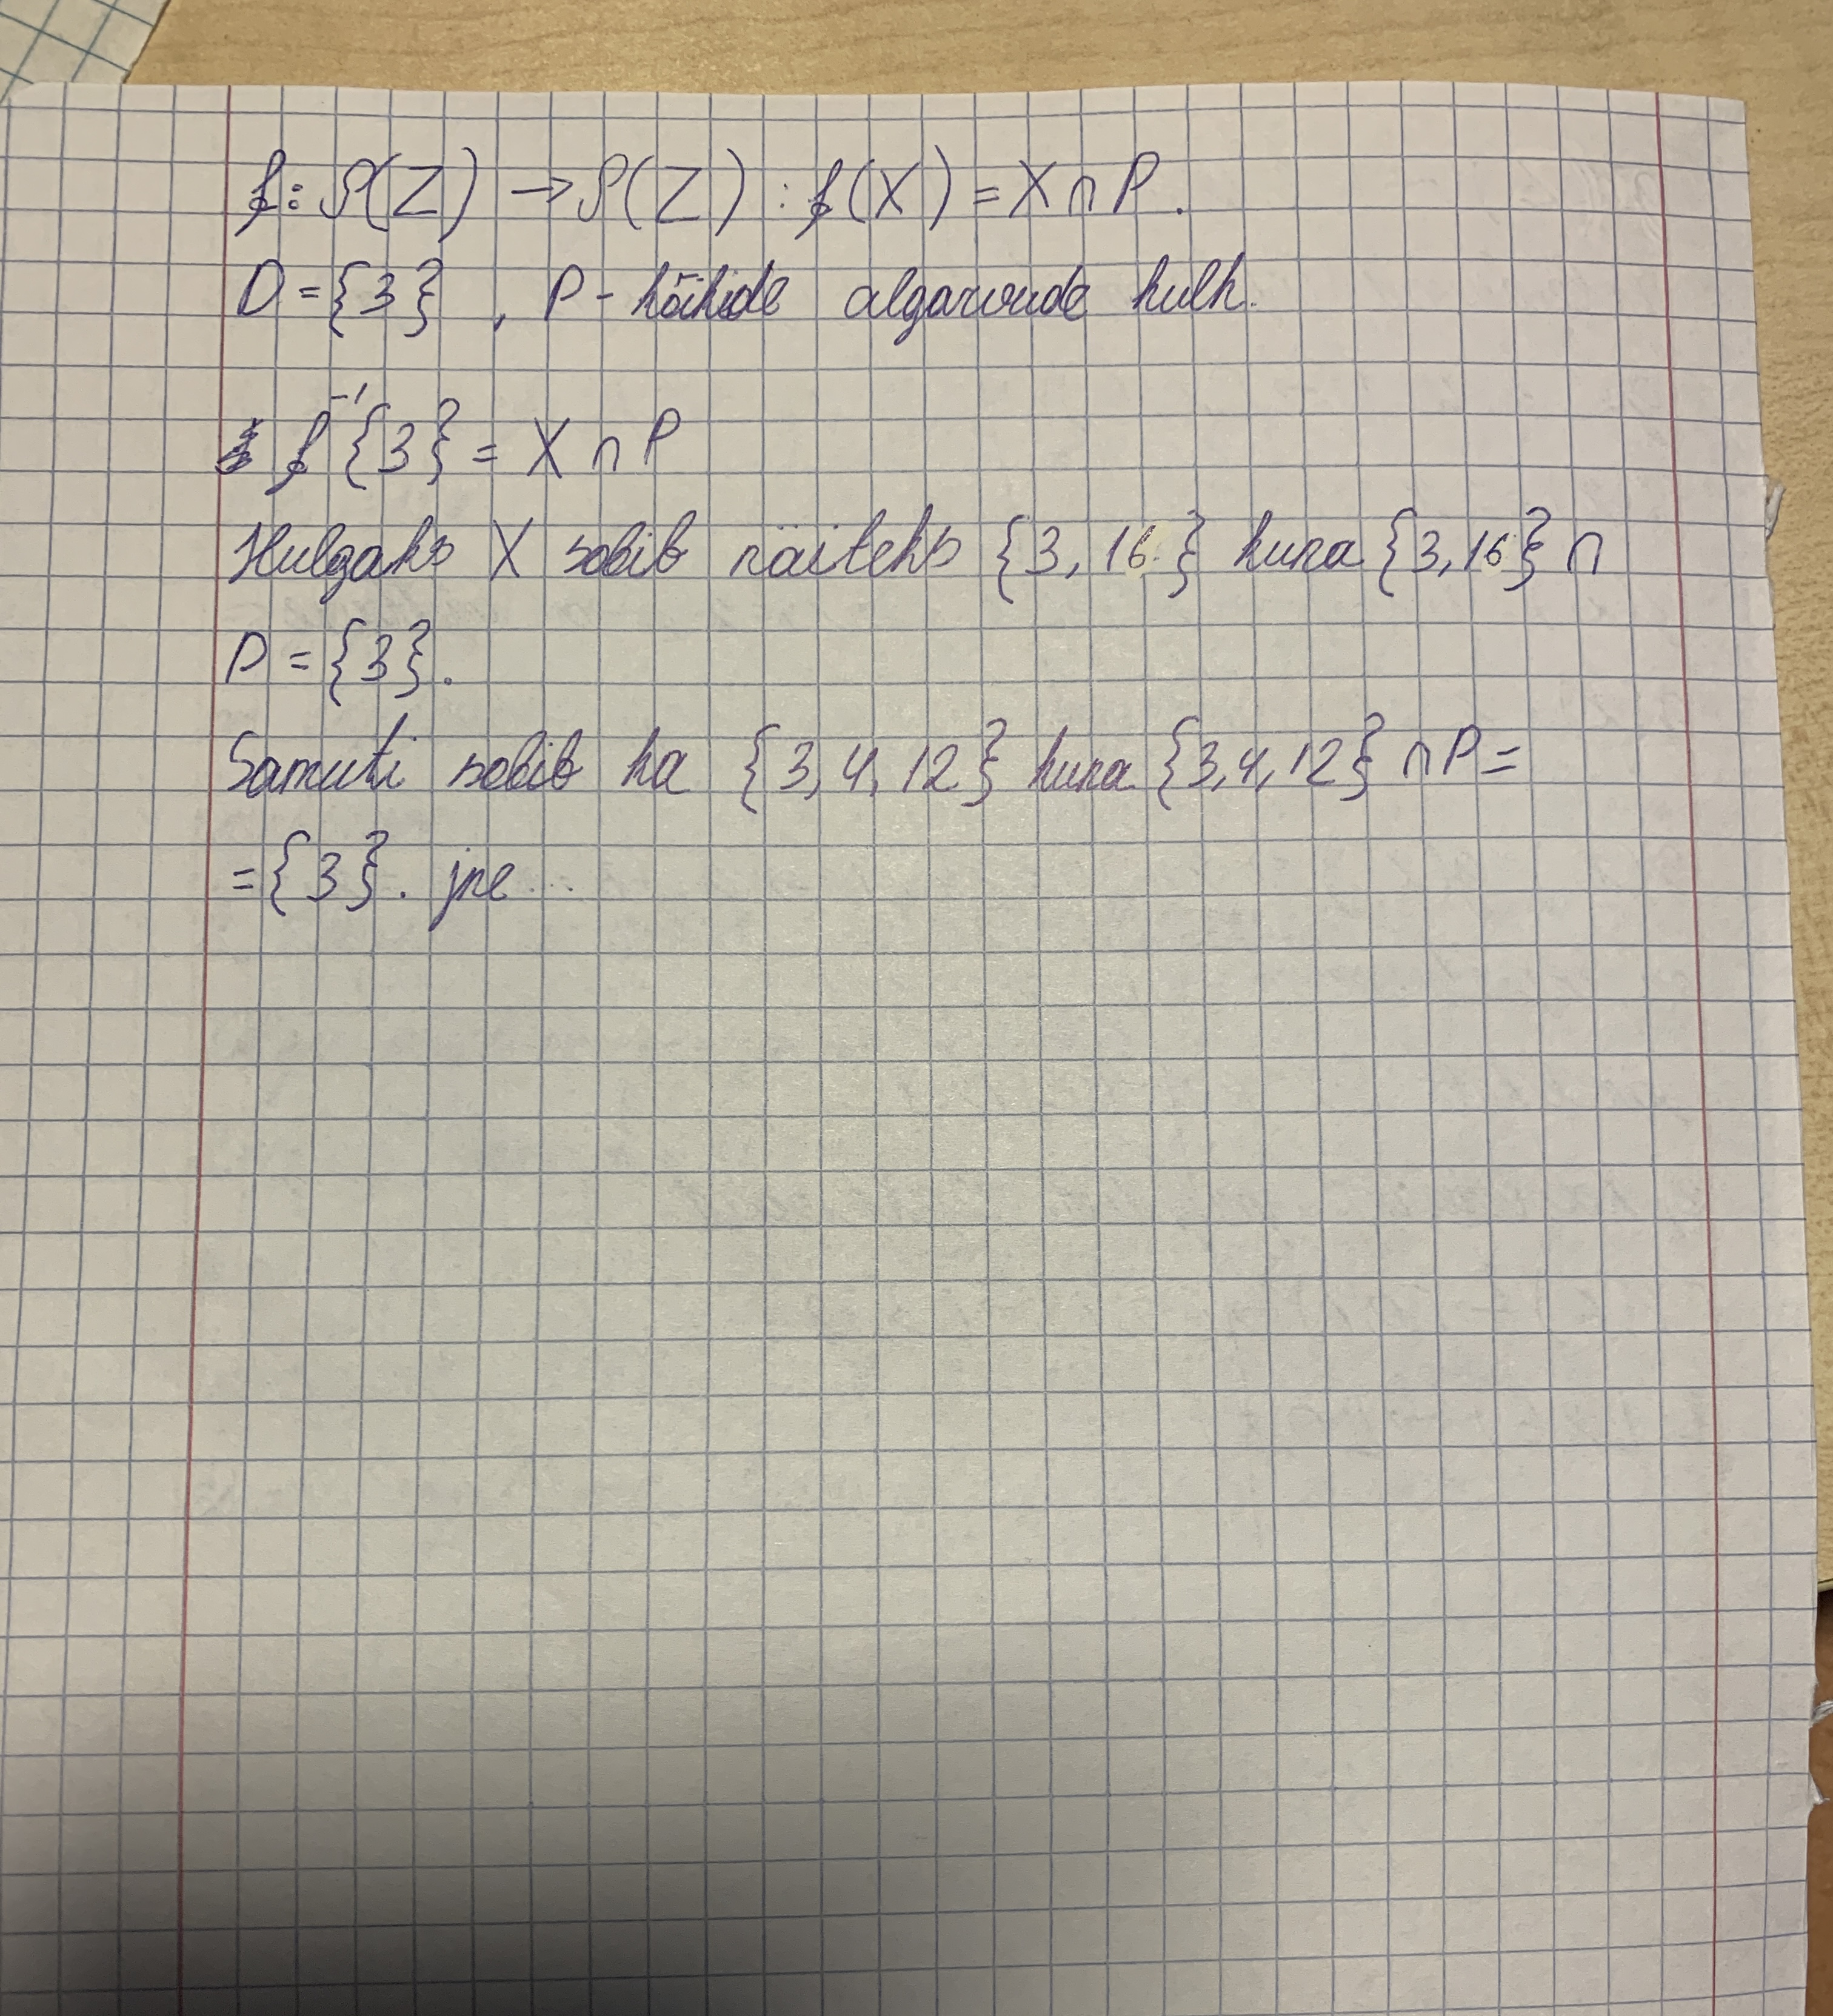 f: P(Z) → P(Z) : f(X) = X ∩ P.
D = {3} , P - kõikide algarvude hulk.
f⁻¹{3} = X ∩ P
Hulgaks X sobib näiteks {3, 16} kuna {3, 16} ∩
P = {3}.
Samuti sobib ka {3, 4, 12} kuna {3, 4, 12} ∩ P =
= {3}. jne...